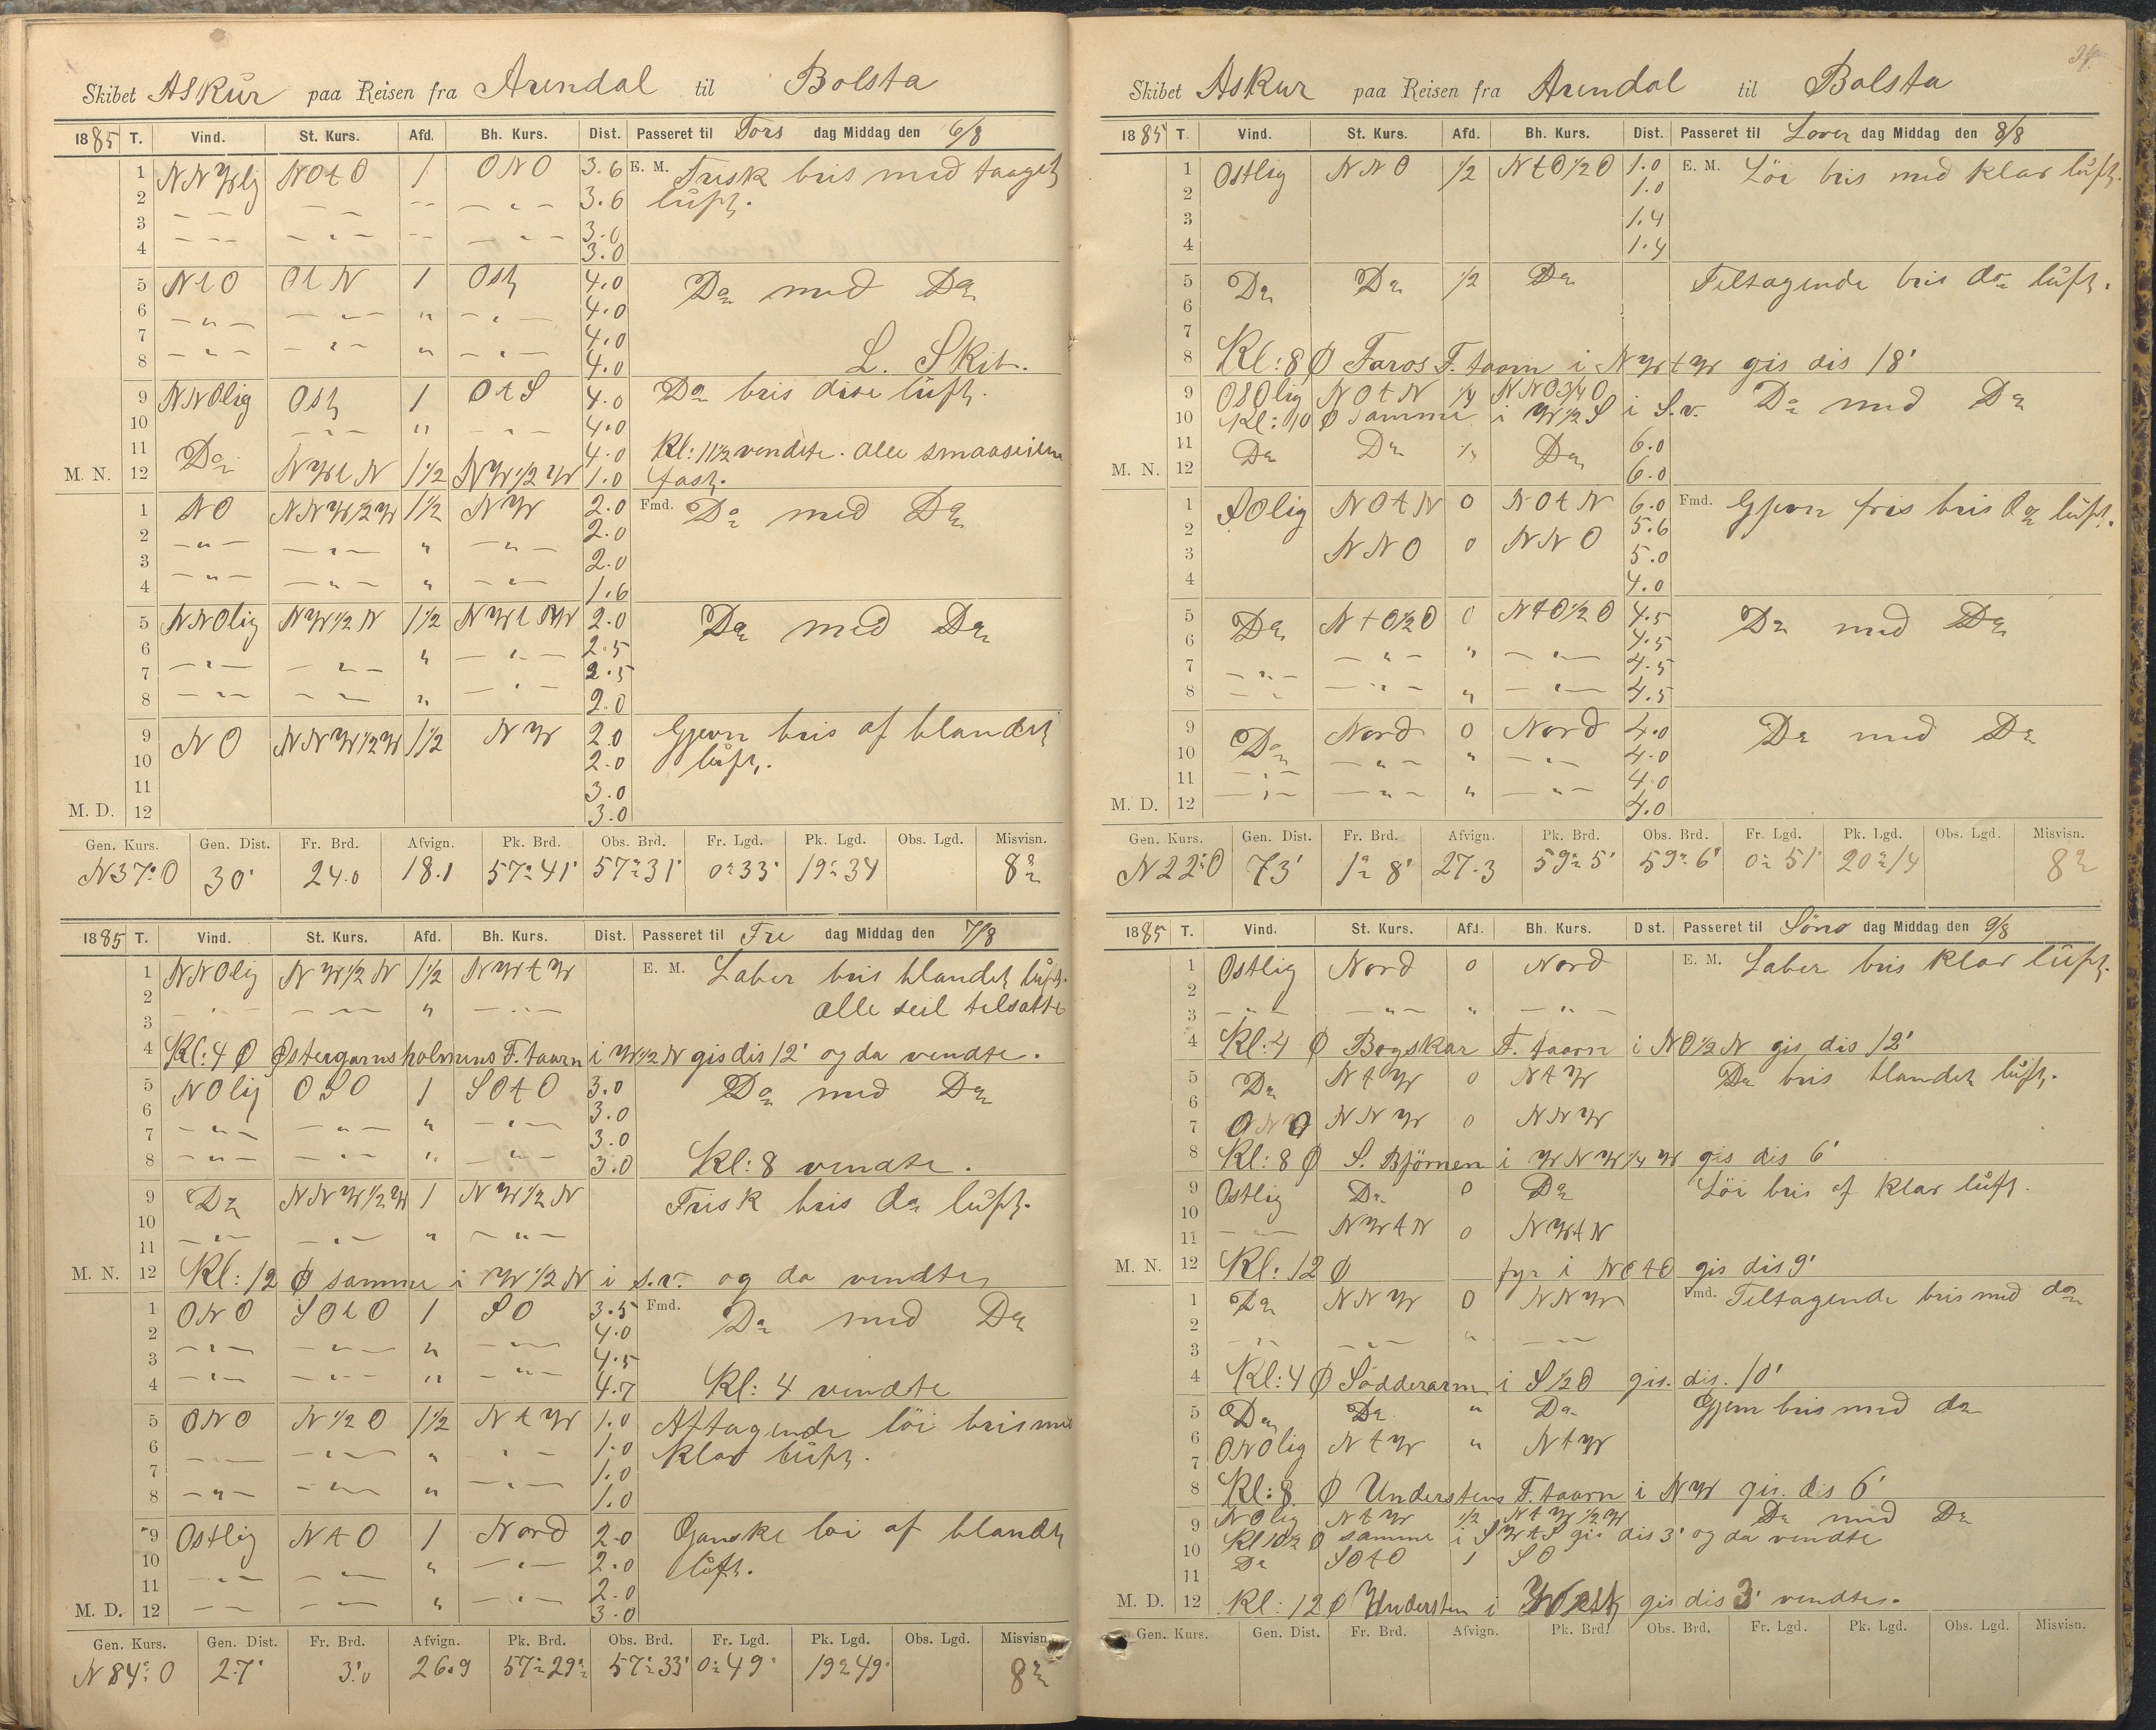 Skibet Askur paa Reisen fra Arendal til Bolsta
1885 T. Vind. St. Kurs. Afd. Bh. Kurs. Dist. Passeret til Tors dag Middag den 6/8
1 NNWlig NOtO 1 ONO 3.6 E. M. Frisk bris med taaget
2 3.6 luft.
3 3.0
4 3.0
5 NtO OtN 1 Ost 4.0 Do med Do
6 4.0
7 4.0
8 4.0 L. Skib.
9 NNOlig Ost 1 OtS 4.0 Do bris disi luft.
10 4.0
11 4.0 Kl: 11½ vendte. alle smaaseilene
M. N. 12 Do NWtN 1½ NW½W 1.0 fast.
1 NO NNW½W 1½ NW 2.0 Fmd. Do med Do
2 2.0
3 2.0
4 1.6
5 NNOlig NW½N 1½ NWtW 2.0 Do med Do
6 2.5
7 2.5
8 2.0
9 NO NNW½W 1½ NW 2.0 Gjevn bris af blandet
10 2.0 luft.
11 3.0
M. D. 12 3.0
Gen. Kurs. Gen. Dist. Fr. Brd. Afvign. Pk. Brd. Obs. Brd. Fr. Lgd. Pk. Lgd. Obs. Lgd. Misvisn.
N37°O 30' 24.0 18.1 57°41' 57°31' 0°33' 19°34 8°
1885 T. Vind. St. Kurs. Afd. Bh. Kurs. Dist. Passeret til Fre dag Middag den 7/8
1 NNOlig NW½N 1½ NWtW E. M. Laber bris blandet luft.
2 alle seil tilsatte
3
4 Kl: 4 Ø Østergarnsholmens F. taarn i W½N gis dis 12' og da vendte.
5 NOlig OSO 1 SOtO 3.0 Do med Do
6 3.0
7 3.0
8 3.0 Kl: 8 vendte.
9 Do NNW½W 1 NW½N Frisk bris do luft.
10
11
M. N. 12 Kl: 12 Ø samme i W½N i s.v. og da vendtes
1 ONO SOtO 1 SO 3.5 Fmd. Do med Do
2 4.0
3 4.5
4 4.7 Kl: 4 vendte
5 ONO N½O 1½ NtW 1.0 Aftagende löi bris med
6 1.0 klar luft.
7 1.0
8 1.0
9 Ostlig NtO 1 Nord 2.0 Ganske loi af blandt
10 2.0 luft.
11 2.0
M. D. 12 3.0
Gen. Kurs. Gen. Dist. Fr. Brd. Afvign. Pk. Brd. Obs. Brd. Fr. Lgd. Pk. Lgd. Obs. Lgd. Misvisn.
N84°O 27' 3.0 26.9 57°29' 57°33' 0°49' 19°49' 8°
Skibet Askur paa Reisen fra Arendal til Bolsta
1885 T. Vind. St. Kurs. Afd. Bh. Kurs. Dist. Passeret til Lover dag Middag den 8/8
1 Ostlig NNO ½ NtO½O 1.0 E. M. Löi bris med klar luft.
2 1.0
3 1.4
4 1.4
5 Do Do ½ Do Tiltagende bris do luft.
6
7
8 Kl: 8 Ø Faros F. taarn i NWtW gis dis 18'
9 OSOlig NOtN ¼ NNO3/4O Do med Do
10 Kl: 10 Ø samme i W½S i S.v.
11 Do Do ¼ Do 6.0
M. N. 12 6.0
1 SOlig NOtN 0 NOtN 6.0 Fmd. Gjevn fris bris do luft.
2 NNO 0 NNO 5.6
3 5.0
4 4.0
5 Do NtO½O 0 NtO½O 4.5 Do med Do
6 4.5
7 4.5
8 4.5
9 Do Nord 0 Nord 4.0 Do med Do
10 4.0
11 4.0
M. D. 12 4.0
Gen. Kurs. Gen. Dist. Fr. Brd. Afvign. Pk. Brd. Obs. Brd. Fr. Lgd. Pk. Lgd. Obs. Lgd. Misvisn.
N22°O 73' 1°8' 27.3 59°5' 59°6' 0°51' 20°14 8°
1885 T. Vind. St. Kurs. Afd. Bh. Kurs. Dist. Passeret til Sönd dag Middag den 9/8
1 Ostlig Nord 0 Nord E. M. Laber bris klar luft.
2
3
4 Kl: 4 Ø Bogskar F. taarn i NO½N gis dis 12'
5 Do NtW 0 NtW Do bris blandet luft.
6
7 ONO NNW 0 NNW
8 Kl: 8 Ø S. Björnen i WNW¼W gis dis 6'
9 Ostlig Do 0 Do Löi bris af klar luft.
10
11 NWtN 0 NWtN
M. N. 12 Kl: 12 Ø fyr i NOtO gis dis 9'
1 Do NNW 0 NNW Fmd. Tiltagende bris med do
2
3
4 Kl: 4 Ø Södderarm i S½O gis. dis. 10'
5 Do Do " Do Gjem bris med do
6 ONOlig NtW " NtW
7
8 Kl: 8. Ø Understens F. taarn i NW gis. dis 6'
9 NOlig NtW ½ NtW½W Do med Do
10 Kl 10½ Ø samme i SWtS gis dis 3' og da vendte
11 Do SOtO 1 SO
M. D. 12 Kl: 12 Ø Understen i West gis dis 3' vendtes.
Gen. Kurs. Gen. Dist. Fr. Brd. Afvign. Pk. Brd. Obs. Brd. Fr. Lgd. Pk. Lgd. Obs. Lgd. Misvisn.